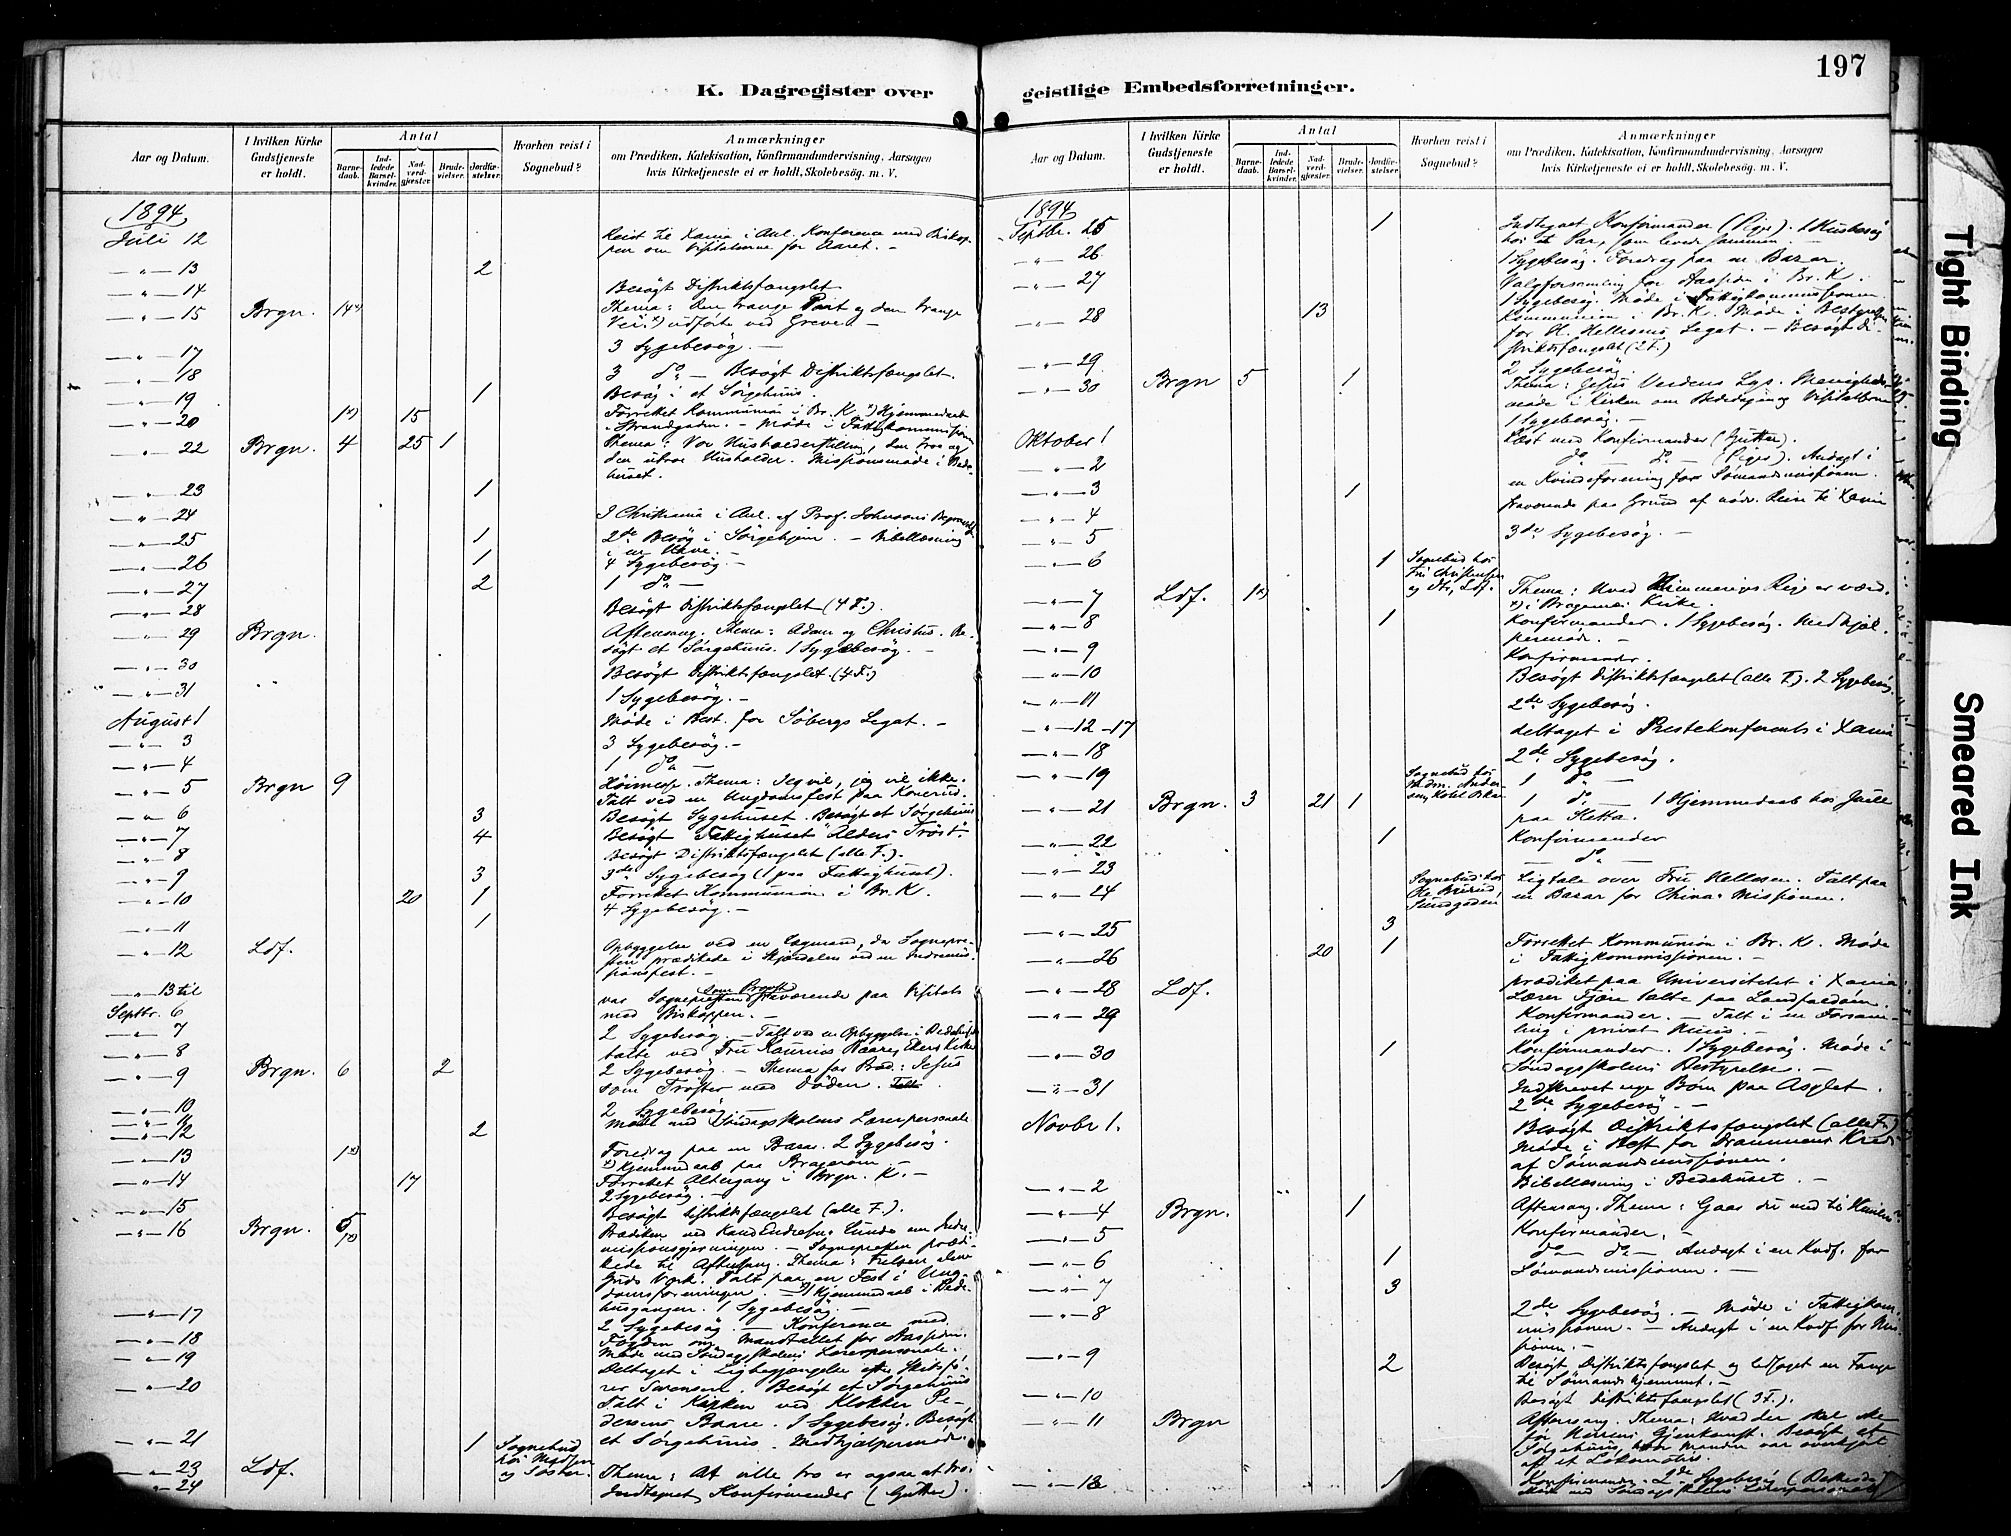 K. Dagregister over
Aar og Datum.
I hvilken Kirke
Gudstjeneste
er holdt.
Antal
Barne-
daab.
Ind-
ledede
Barsel-
kvinder.
Nad-
verd-
gjester.
Brude-
vielser.
Jordfæ-
stelser.
Hvorhen reist i
Sognebud?
Anmærkninger
om Prædiken, Katekisation, Konfirmandundervisning, Aarsagen
hvis Kirketjeneste ei er holdt, Skolebesøg, m. V.
1894
Juli 12 Reist til Xania i Anl. Konference med Biskop-
pen om Visitatserne for Aaret. -
" 13 2
" 14 Besøgt Distriktsfængslet
" 15 Brgn. Thema: Den trange Port og den trange
Vei.
" 17 3 Sygebesøg. -
" 18 3 do - Besøgt Distriktsfængslet.
" 19 1 Besøg i et Sørgehuus.
" 20 15 Forrettet Kommunion i Br. K. Hjemmedaab
i Strandgaden. - Møde i Fattigkommissionen
" 22 Brgn. 4 25 1 Thema: Vor Husholderstilling, den tro og
den utro Husholder. Missionsmøde i Bede-
huset.
" 23 1
" 24 I Christiania i Anl. af Prof. Johnsons
" 25 1 2de Besøg i Sørgehjem. - Bibellæsning
" 26 1 4 Sygebesøg. -
" 27 2 1 do -
" 28 Besøgt Distriktsfængslet (4 F.).
" 29 Brgn. Aftensang. Thema: Adam og Christus. Be-
søgt et Sørgehuus. 1 Sygebesøg. -
" 30 Besøgt Distriktsfængslet. (4 F.)
" 31 1 Sygebesøg. -
August 1 Møde i Best. for Søbergs Legat. -
" 3 3 Sygebesøg. -
" 4 1 do -
" 5 Brgn 9 Høimesse. Thema: Jeg vil, jeg vil ikke.
Talt ved en Ungdomsfest paa Konerud.
" 6 3 Besøgt Sygehuset. Besøgt et Sørgehuus
" 7 4 Besøgt Fattighuset "Alders Trøst".
" 8 Besøgt Distriktsfængslet (alle F.).
" 9 3 3de Sygebesøg (1 paa Fattighuset).
" 10 20 1 Forrettet Kommunion i Br. K.
" 11 1 4 Sygebesøg. -
" 12 Ldf. Opbyggelse ved en Lægmand, da Sognepre-
sten prædikede i Skjærdalen ved en Indremis-
sionsfest. -
" 13 til var Sognepresten som Provst fraværende paa Visitats
Septbr. 6 med Biskoppen. -
" 7 2 Sygebesøg. - Talt ved en Opbyggelse i Bedehuset
" 8 talte ved Fru Baare, Ekers Kirke
" 9 Brgn. 6 2 2 Sygebesøg. - Thema for Præd.: Jesus
som Trøster med Døden.
" 10 2 Sygebesøg -
" 12 2 Møde med Søndagsskolens Lærerpersonale
" 13 Foredrag paa en Basar. 2 Sygebesøg.
Hjemmedaab paa Bragerøen
" 14 17 Forrettet Altergang i Brgn. K. -
2 Sygebesøg. -
" 15 Besøgt Distriktsfængslet (alle F.).
" 16 Brgn. 5 Prædiken ved Kand Endresen Lunde om Indre-
missionsgjerningen. - Sognepresten præd-
kede til Aftensang. Thema: Frelsen alene
Guds Værk. Talt paa en Fest i Ung-
domsforeningen. - Hjemmedaab i Bede-
husgangen. 1 Sygebesøg. -
" 17 2 Sygebesøg - Konference med
" 18 Fogden om Mandtallet for
" 19 Møde med Søndagsskolens Lærerpersonale.
Deltaget i Ligbegjængelse efter Skibsfø-
" 20 rer Svensen. Besøgt et Sørgehuus
Talt i Kirken ved Klokker Pe-
dersens Baare. 1 Sygebesøg. Besøgt
" 21 1 et Sørgehuus. Medhjælpermøde.
Sognebud
" 23 Ldf. Thema: At ville tro er ogsaa at tro.
" 24 Indtegnet Konfirmander (Gutter).
geistlige Embedsforretninger.
197
Aar og Datum.
I hvilken Kirke
Gudstjeneste
er holdt.
Antal
Barne-
daab.
Ind-
ledede
Barsel-
kvinder.
Nad-
verd-
gjester.
Brude-
vielser.
Jordfæ-
stelser.
Hvorhen reist i
Sognebud?
Anmærkninger
om Prædiken, Katekisation, Konfirmandundervisning, Aarsagen
hvis Kirketjeneste ei er holdt, Skolebesøg, m. V.
1894
Septbr. 25 1 Indtegnet Konfirmander (Piger). 1 Husbesøg
hos et Par, som levede sammen. -
" 26 1 Sygebesøg. Foredrag paa en Basar.
" 27 Valgforsamling for Aassiden i Br. K.
1 Sygebesøg. Møde i Fattigkommissionen.
" 28 13 Kommunion i Br. K. Møde i Bestyrelsen
for H. Hellesens Legat. - Besøgt Di-
striktsfængslet (2 F.)
" 29 2 Sygebesøg.
" 30 Brgn 5 1 Thema: Jesus Verdens Lys. Menigheds-
møde i Kirken om Bededagen og Visitatsen
1 Sygebesøg. -
Oktober 1 Læst med Konfirmander (Gutter).
" 2 do - do - (Piger). Andagt i
en Kvindeforening for Sømandsmissionen.
" 3 1
" 4 fraværende paa Grund af nødv. Reise til Xania
" 5 3de Sygebesøg. -
" 6 1 Sognebud hos
Fru Christensen
" 7 Ldf. Thema: Hvad Himmeriges Rige er værd.
i Bragernes Kirke.
" 8 1 Konfirmander. 1 Sygebesøg. Medhjæl-
permøde. -
" 9 Konfirmander.
" 10 Besøgt Distriktsfængslet (alle F.). 2 Sygebesøg.
" 11 2de Sygebesøg.
" 12-17 deltaget i Prestekonferents i Xania
" 18 2de Sygebesøg.
" 19 1 do -
Sognebud hos
Mdm. Ander-
sen, Hotel Oskar
" 21 Brgn. 3 21 1 1 do - 1 Hjemmedaab hos Juell
paa Sletta.
" 22 1 Konfirmander
" 23 do -
" 24 Sognebud hos
Ligtale over Fru Hellesen. Talt paa
en Basar for China-Missionen.
" 25 3
" 26 20 1 Forrettet Kommunion i Br. K. Møde
i Fattigkommissionen. -
" 28 Ldf. prædiket paa Universitetet i Xania
Lærer Fjære talte paa Landfaldøen.
" 29 Konfirmander. - Talt i en Forsam-
ling i privat Huus. -
" 30 1 Konfirmander. 1 Sygebesøg. Møde i
Søndagsskolens Bestyrelse. -
" 31 Indskrevet nye Børn paa Asylet.
2de Sygebesøg. -
Novbr 1. Besøgt Distriktsfængslet (alle F.)
Møde i Best for Drammens Kreds
af Sømandsmissionen.
" 2 Bibellæsning i Bedehuset. -
" 4 Brgn. 1 Aftensang. Thema: Gaar du med til Himlen?
" 5 Konfirmander. -
" 6 1 do - do - Andagt i en Kvdf. for
Sømandsmissionen. -
" 7 3
" 8 2de Sygebesøg. - Møde i Fattigkom-
missionen. - Andagt i en Kvdf for Mis-
sionen. -
" 9 2 Besøgt Distriktsfængslet og ledsaget en Fange
til Sømandshjemmet. -
" 10 Besøgt Distriktsfængslet (3 F.).
" 11 Brgn Aftensang. Thema: Hvad der skal ske
før Herrens Gjenkomst. Besøgt et
Sørgehuus, hvor Manden var overkjørt
af et Lokomotiv.
" 13 Konfirmander. 2de Sygebesøg
Møde med Søndagsskolens Lærerpersonale
Tight Binding
Smeared Ink